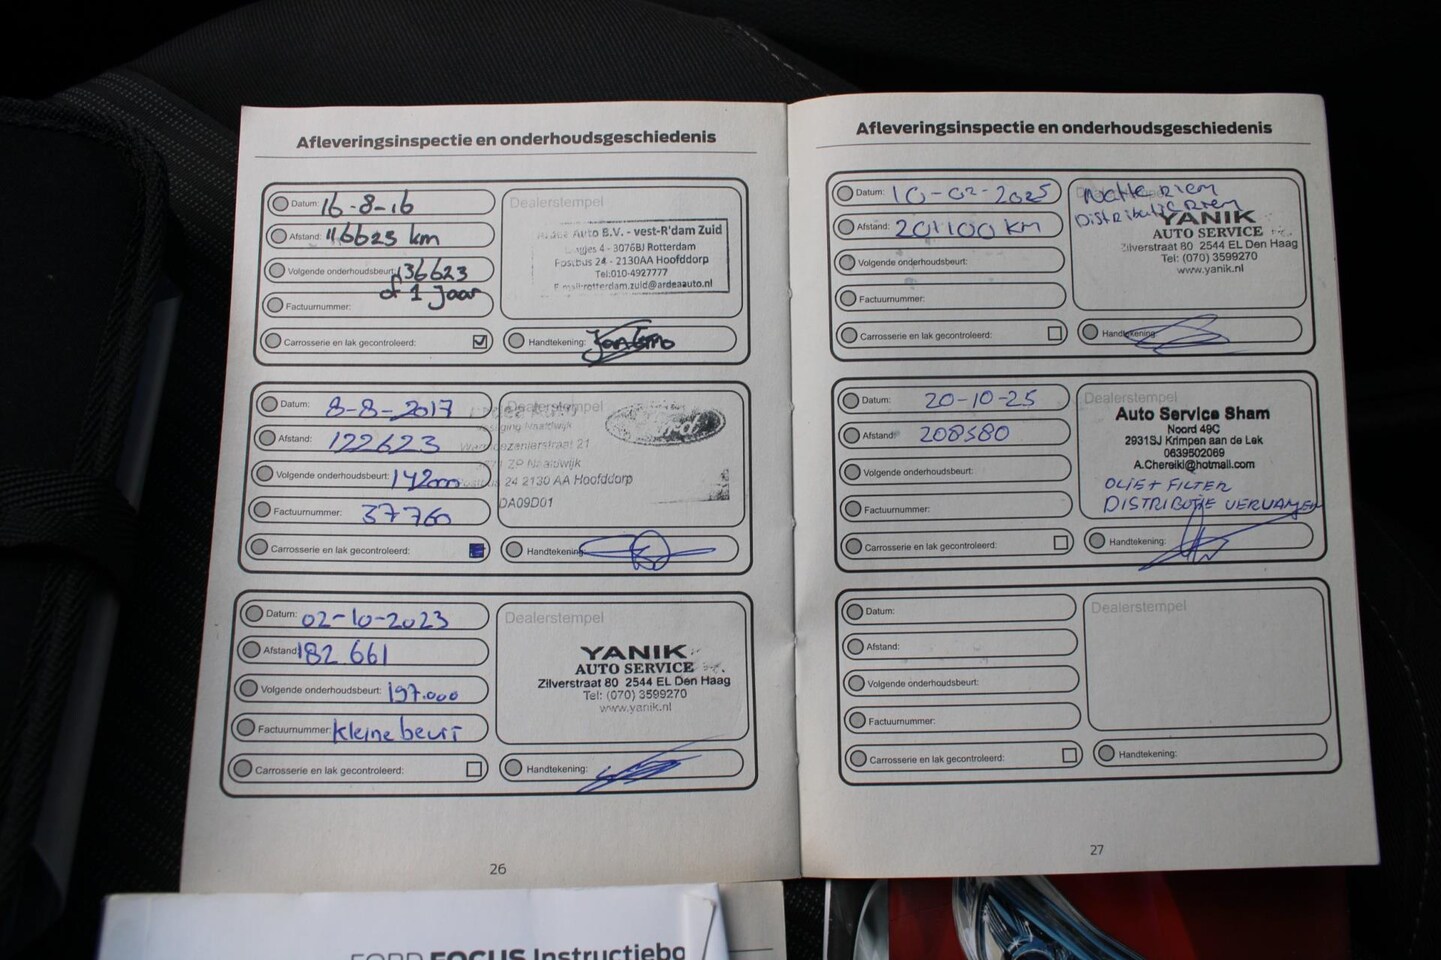 Afleveringsinspectie en onderhoudsgeschiedenis
Datum: 16-8-16
Afstand: 116623 km
Volgende onderhoudsbeurt: 136623
of 1 Jaar
Factuurnummer:
Carrosserie en lak gecontroleerd:
Dealerstempel
Auto B.V. - vest-R'dam Zuid
4 - 3076BJ Rotterdam
Postbus 24 - 2130AA Hoofddorp
Tel:010-4927777
E-mail:rotterdam.zuid@ardeaauto.nl
Handtekening:
Datum: 8-8-2017
Afstand: 122623
Volgende onderhoudsbeurt: 142000
Factuurnummer: 37760
Carrosserie en lak gecontroleerd:
Dealerstempel
Ford
vestiging Naaldwijk
21
Naaldwijk
24 2130 AA Hoofddorp
DA09D01
Handtekening:
Datum: 02-10-2023
Afstand: 182 661
Volgende onderhoudsbeurt: 197.000
Factuurnummer: kleine beurt
Carrosserie en lak gecontroleerd:
Dealerstempel
YANIK
AUTO SERVICE
Zilverstraat 80 2544 EL Den Haag
Tel: (070) 3599270
www.yanik.nl
Handtekening:
26
Afleveringsinspectie en onderhoudsgeschiedenis
Datum: 10-02-2025
Afstand: 201100 KM
Volgende onderhoudsbeurt:
Factuurnummer:
Carrosserie en lak gecontroleerd:
Dealerstempel
Natte Riem
Distributie Riem
YANIK
AUTO SERVICE
Zilverstraat 80 2544 EL Den Haag
Tel: (070) 3599270
www.yanik.nl
Handtekening:
Datum: 20-10-25
Afstand: 208580
Volgende onderhoudsbeurt:
Factuurnummer:
Carrosserie en lak gecontroleerd:
Dealerstempel
Auto Service Sham
Noord 49C
2931SJ Krimpen aan de Lek
0639502069
A.Chereiki@hotmail.com
OLIE + FILTER
DISTRIBUTIE VERVANGEN
Handtekening:
Datum:
Afstand:
Volgende onderhoudsbeurt:
Factuurnummer:
Carrosserie en lak gecontroleerd:
Dealerstempel
Handtekening:
27
FORD FOCUS Instructiebo